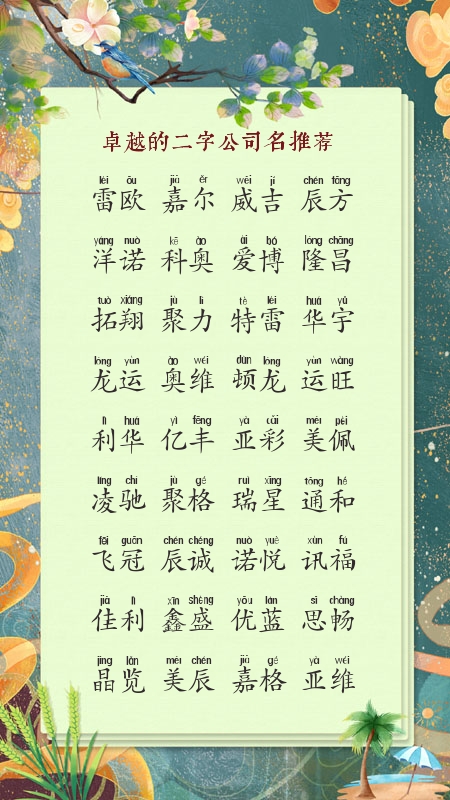 卓越的二字公司名推荐
léi ōu jiā ěr wēi jí chén fāng
雷欧 嘉尔 威吉 辰方
yáng nuò kē ào ài bó lóng chāng
洋诺 科奥 爱博 隆昌
tuò xiáng jù lì tè léi huá yǔ
拓翔 聚力 特雷 华宇
lóng yùn ào wéi dùn lóng yùn wàng
龙运 奥维 顿龙 运旺
lì huá yì fēng yà cǎi měi pèi
利华 亿丰 亚彩 美佩
líng chí jù gé ruì xīng tōng hé
凌驰 聚格 瑞星 通和
fēi guān chén chéng nuò yuè xùn fú
飞冠 辰诚 诺悦 讯福
jiā lì xīn shèng yōu lán sī chàng
佳利 鑫盛 优蓝 思畅
jīng lǎn měi chén jiā gé yà wéi
晶览 美辰 嘉格 亚维